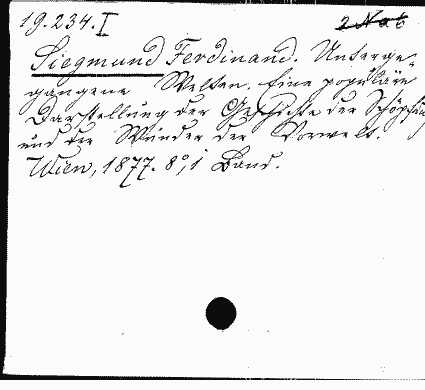 19.234.I
Siegmund Ferdinand. Unterge-
gangene Welten. Eine populäre
Darstellung der Geschichte der Schöpfung
und der Wunder der Vorwelt.
Wien, 1877. 8°, 1 Band.